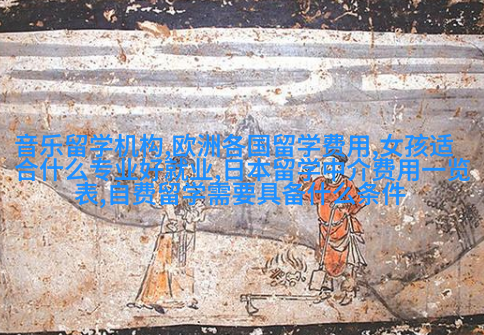 音乐留学机构,欧洲各国留学费用,女孩适
合什么专业好就业,日本留学中介费用一览
表,自费留学需要具备什么条件